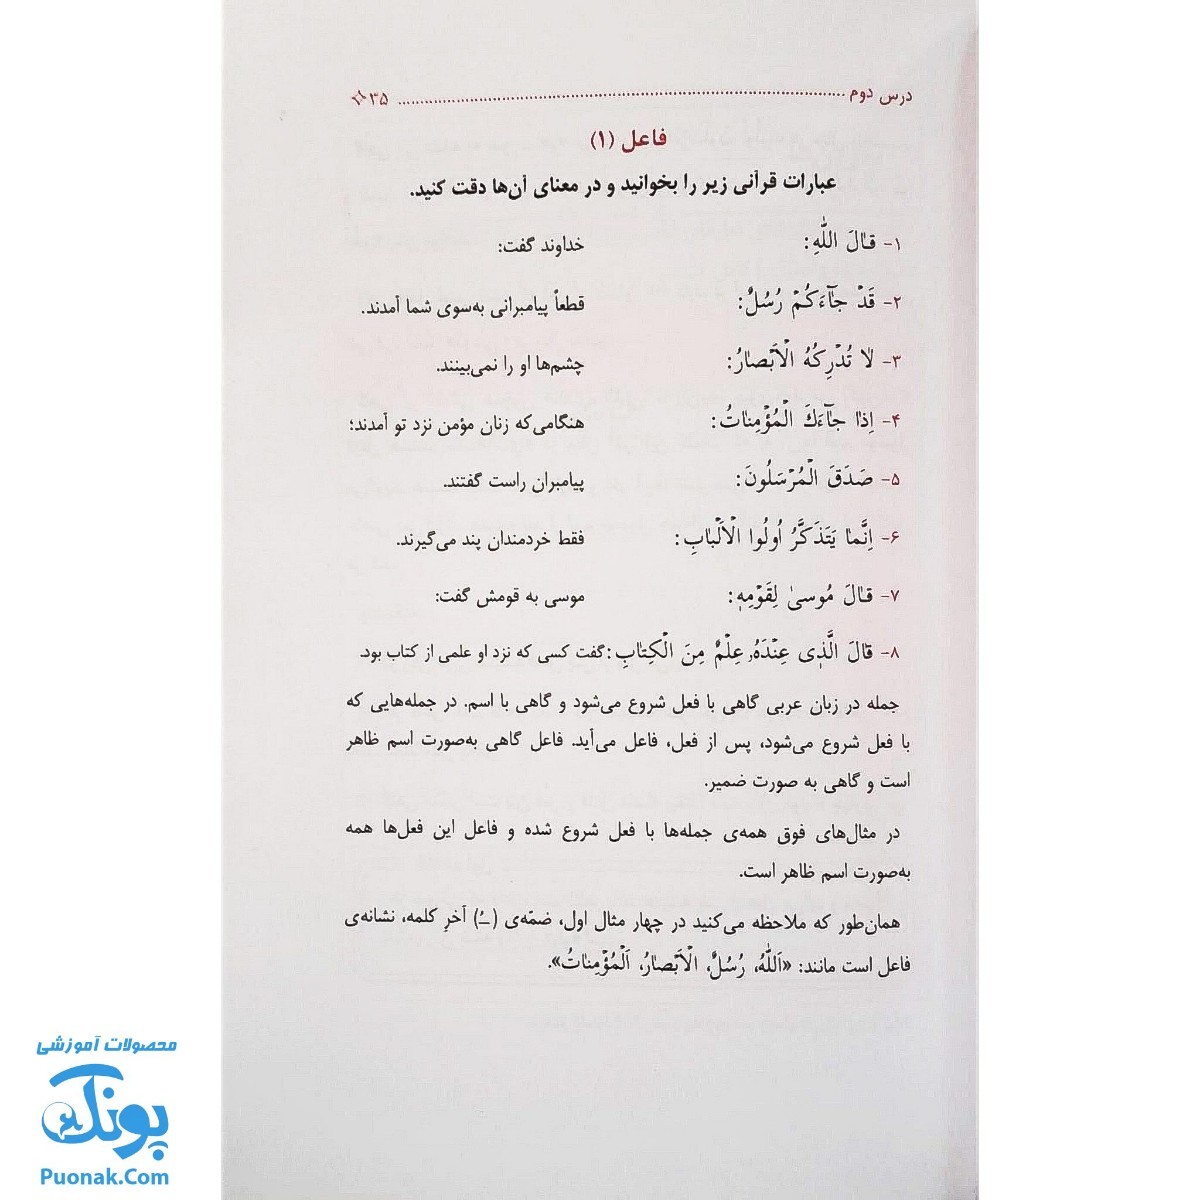 درس دوم ........................ ۳۵
فاعل (۱)
عبارات قرآنی زیر را بخوانید و در معنای آن‌ها دقت کنید.
۱- قالَ اللّٰهِ: خداوند گفت:
۲- قَدْ جآءَكُمْ رُسُلٌ: قطعاً پیامبرانی به‌سوی شما آمدند.
۳- لا تُدْرِكُهُ الْاَبْصارُ: چشم‌ها او را نمی‌بینند.
۴- اِذا جآءَكَ الْمُؤْمِناتُ: هنگامی‌که زنان مؤمن نزد تو آمدند؛
۵- صَدَقَ الْمُرْسَلُونَ: پیامبران راست گفتند.
۶- اِنَّما یَتَذَکَّرُ اُولُوا الْاَلْبابِ: فقط خردمندان پند می‌گیرند.
۷- قالَ مُوسیٰ لِقَوْمِهٖ: موسی به قومش گفت:
۸- قالَ الَّذٖی عِنْدَهُۥ عِلْمٌ مِنَ الْکِتابِ: گفت کسی که نزد او علمی از کتاب بود.
جمله در زبان عربی گاهی با فعل شروع می‌شود و گاهی با اسم. در جمله‌هایی که
با فعل شروع می‌شود، پس از فعل، فاعل می‌آید. فاعل گاهی به‌صورت اسم ظاهر
است و گاهی به صورت ضمیر.
در مثال‌های فوق همه‌ی جمله‌ها با فعل شروع شده و فاعل این فعل‌ها همه
به‌صورت اسم ظاهر است.
همان‌طور که ملاحظه می‌کنید در چهار مثال اول، ضمّه‌ی (ـُ) آخرِ کلمه، نشانه‌ی
فاعل است مانند: «اَللّٰهُ، رُسُلٌ، الْاَبْصارُ، اَلْمُؤْمِناتُ».
محصولات آموزشی
پونک
Puonak.Com